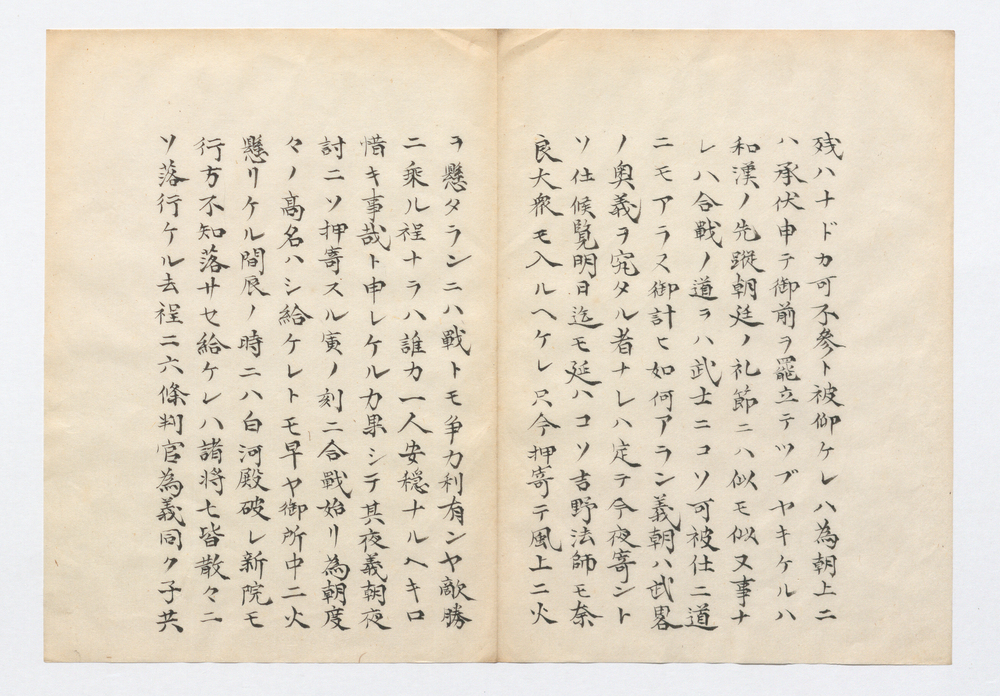 残ハナドカ可不参ト被仰ケレハ為朝上ニ
ハ承伏申テ御前ヲ罷立テツブヤキケルハ
和漢ノ先蹤朝廷ノ礼節ニハ似モ似又事ナ
レハ合戦ノ道ヲハ武士ニコソ可被仕ニ道
ニモアラス御計ヒ如何アラン義朝ハ武畧
ノ奥義ヲ究タル者ナレハ定テ今夜寄ント
ソ仕候覧明日迄モ延ハコソ吉野法師モ奈
良大衆モ入ルヘケレ只今押寄テ風上ニ火
ヲ懸タランニハ戦トモ争カ利有ンヤ敵勝
ニ乗ル程ナラハ誰カ一人安穏ナルヘキロ
惜キ事哉ト申レケルカ果シテ其夜義朝夜
討ニソ押寄スル寅ノ刻ニ合戦始リ為朝度
々ノ高名ハシ給ケレトモ早ヤ御所中ニ火
懸リケル間辰ノ時ニハ白河殿破レ新院モ
行方不知落サセ給ケレハ諸将モ皆散々ニ
ソ落行ケル去程ニ六條判官為義同ク子共